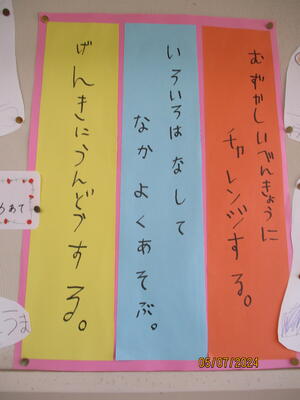 むずかしいべんきょうに
チャレンジする。
いろいろはなして
なかよくあそぶ。
げんきにうんどうする。
めあて
うま
05/07/2024